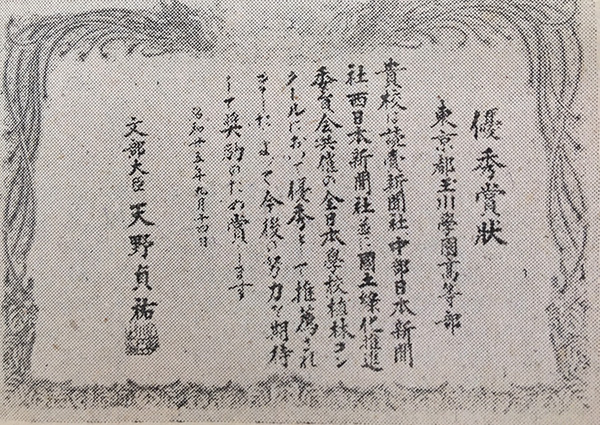 優秀賞狀
東京都玉川學園高等部
貴校は読賣新聞社中部日本新聞
社西日本新聞社並に國土緑化推進
委員会共催の全日本學校植林コン
クールにおいて優秀として推薦され
ましたよって今後の努力を期待
して奨励のため賞します
昭和廿五年九月十四日
文部大臣 天野貞祐